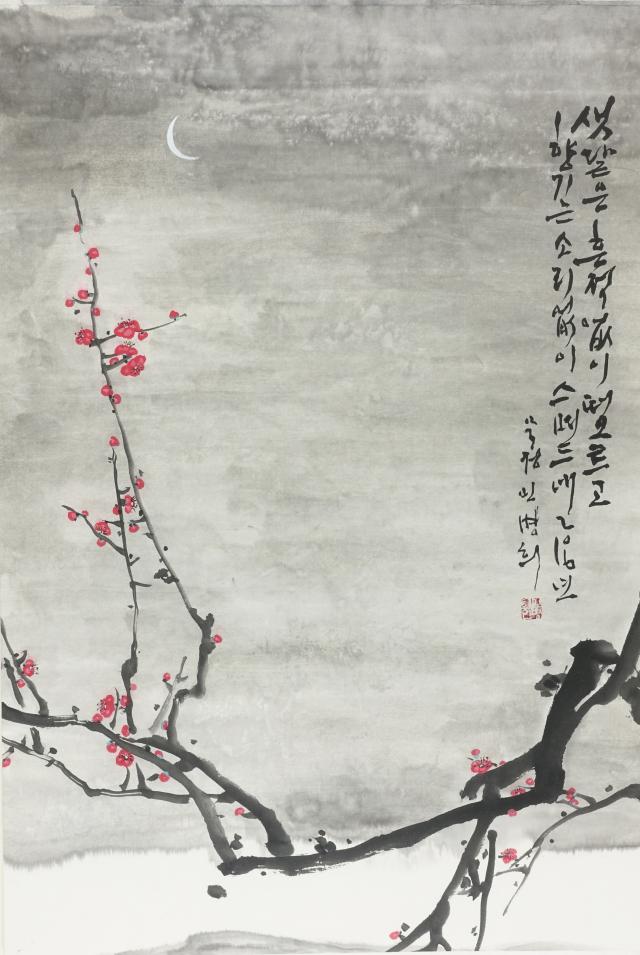 샛달은 흔적 없이 떠오르고
향기는 소리 없이 스며드네
민병희